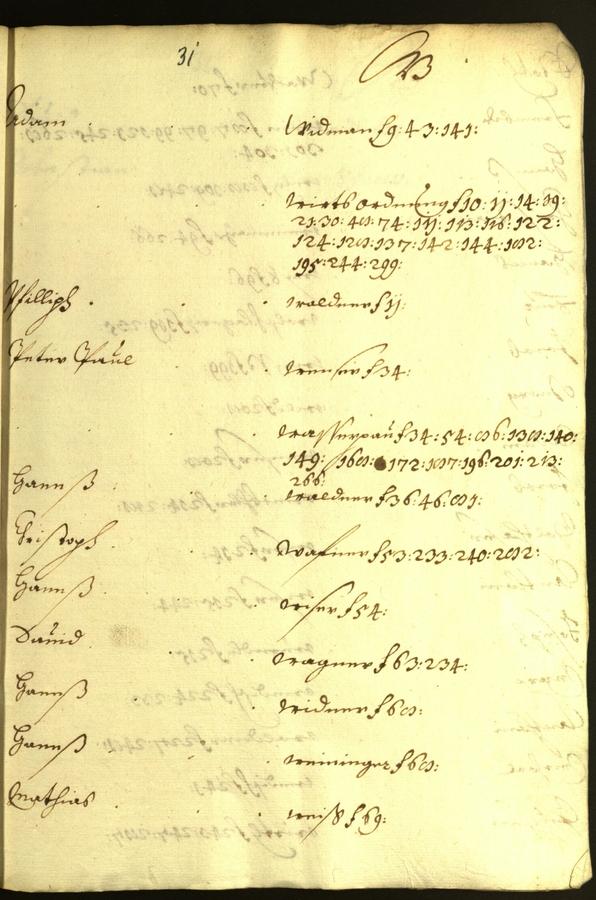 31
W
Adam Widman f 9: 43: 141:
Wirts ordnung f 10: 11: 14: 19:
21: 30: 48: 74: 111: 113: 116: 122:
124: 128: 137: 142: 144: 182:
195: 244: 299:
Phillipß Waldner f 11:
Peter Paul f 34:
Wasserpau f 34: 54: 86: 138: 140:
149: 168: 172: 187: 196: 201: 213:
266:
Hannß Waldner f 36: 46: 81:
Cristoph Wafner f 53: 233: 240: 282:
Hannß Wiser f 54:
Dauid Wagner f 63: 234:
Hannß Widner f 68:
Hannß Weininger f 68:
Mathias Weiß f 69: